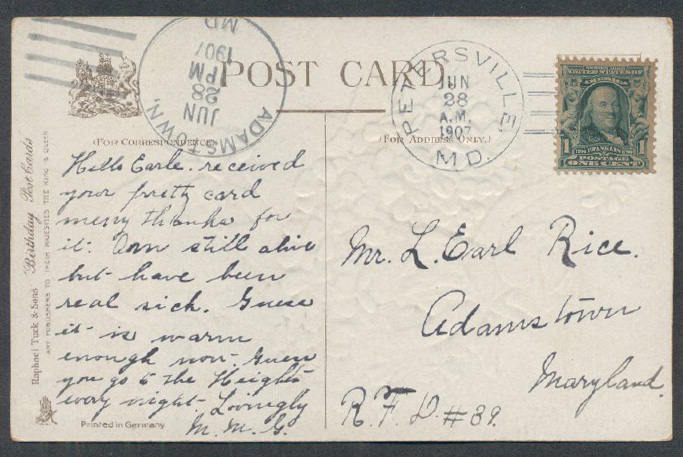 POST CARD
ADAMSTOWN,
JUN
28
1PM
1907
MD
PETERSVILLE
JUN
28
A.M.
1907
MD.
UNITED STATES OF
1 1
POSTAGE
ONE CENT
(FOR CORRESPONDENCE)
(FOR ADDRESS ONLY.)
Hello Earle. received
your pretty card
merry thanks for
it. Am still alive
but have been
real sick. Guess
it is warm
enough now. Guess
you go to the Heights
every night - Lovingly
M. M. G.
Mr. L. Earl Rice.
Adamstown
Maryland.
R. F. D. #89.
Raphael Tuck & Sons "Birthday" Post Cards
ART PUBLISHERS TO THEIR MAJESTIES THE KING & QUEEN
Printed in Germany